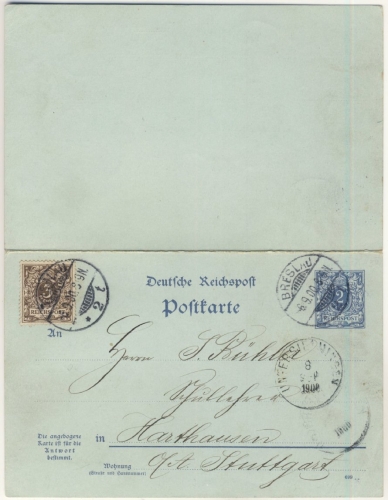 Deutsche Reichspost
Postkarte
BRESLAU
REICHSPOST
BRESLAU
6.9.00
2
REICHSPOST
An
Herrn S. Bühler
Schullehrer
9
SEP
1900
in Harthausen
O/A Stuttgart
Die angebogene
Karte ist für die
Antwort
bestimmt.
Wohnung
(Straße und Hausnummer)